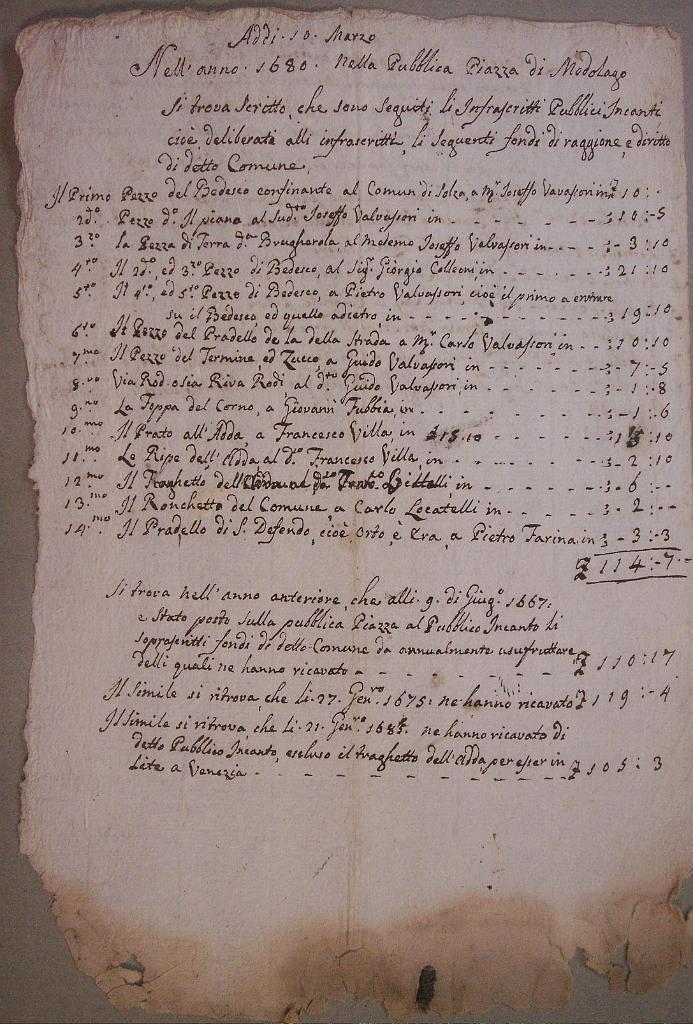 Addi . 10 . Marzo
Nell' anno . 1680 . nella Pubblica Piazza di Medolago
Si trova Scritto, che sono seguiti li Infrascritti Pubblici Incanti
cioè deliberate alli infrascritti, li seguenti fondi di raggione, e diritto
di detto Comune,
Il Primo Pezzo del Bedesco confinante al Comun di Solza, a Mr. Joseffo Vavassori in 10 : -
2do. Pezzo do. Il piana al sudtto Joseffo Valvassori in - - - - 10 : -5
3zo la Pezza di Terra da. Brugherola, al Medemo Joseffo Valvassori in - - - 3 : 10
4to Il 2do. ed 3zo Pezzo di Bedesco, al Sigr. Giorgio Colleoni in - - - - 21 : 10
5to Il 4to, ed 5to Pezzo di Bedesco, a Pietro Valvassori cioè il primo a
su il Bedesco, ed quello adietro, in - - - - 19 : 10
6to Il Pezzo del Pradello de la della Strada a Mr. Carlo Valvassori in - - 10 : 10
7mo Il Pezzo del Termine, ed Zucco, a Guido Valvasori in - - - - 7 : -5
8.vo Via Riva Rodi al dtto Guido Valvasori, in - - - - 1 : 8
9.no La Toppa del Corno, a Giovanni Fubbia in - - - - 1 : 6
10.mo Il Prato all' Adda, a Francesco Villa, in 15.10 - - - 15 : 10
11.mo Le Ripe dell' Adda al do. Francesco Villa, in - - - - 2 : 10
12mo Il Traghetto dell' in - - - - 6 : --
13.mo Il Ronchetto del Comune, a Carlo Locatelli in - - - - 2 : --
14.mo Il Pradello di S. Defendo, cioè orto, è era, a Pietro Farina in - 3 : -3
114 : -7 -
Si trova nell' anno anteriore, che alli . 9. di Giugo. 1667 :
e stato posto sulla pubblica Piazza al Pubblico Incanto li
soprascritti fondi di detto Comune da annualmente usufruttare
delli quali ne hanno ricavato - - - - 110 : 17
Il Simile si ritrova, che li . 27. Genro 1675 : ne hanno ricavato 119 : -4
Il Simile si ritrova, che li . 21. Genro ne hanno ricavato di
detto Pubblico Incanto, escluso il traghetto dell' Adda, per esser in 105 : 3
Lite a Venezia - - - -